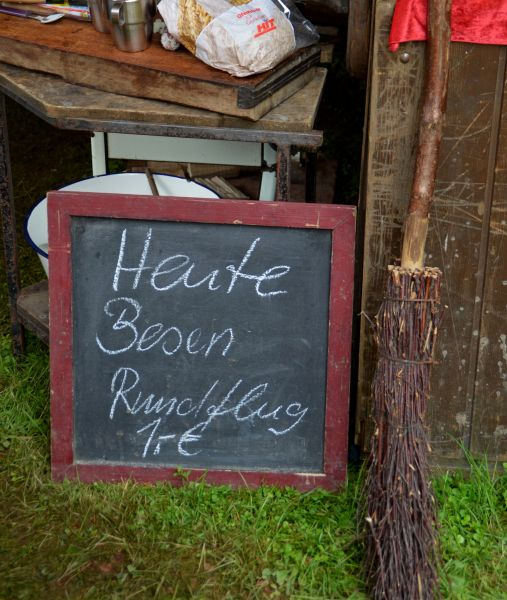 HIT
Heute
Besen
Rundflug
1,-€